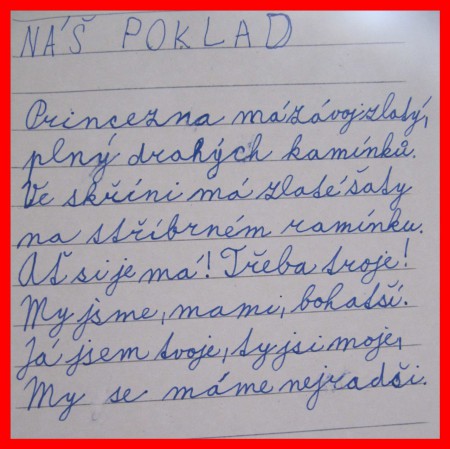 NÁŠ POKLAD
Princezna má závoj zlatý,
plný drahých kamínků.
Ve skříni má zlaté šaty
na stříbrném ramínku.
Ať si je má! Třeba troje!
My jsme, mami, bohatší.
Já jsem tvoje, ty jsi moje,
My se máme nejradši.